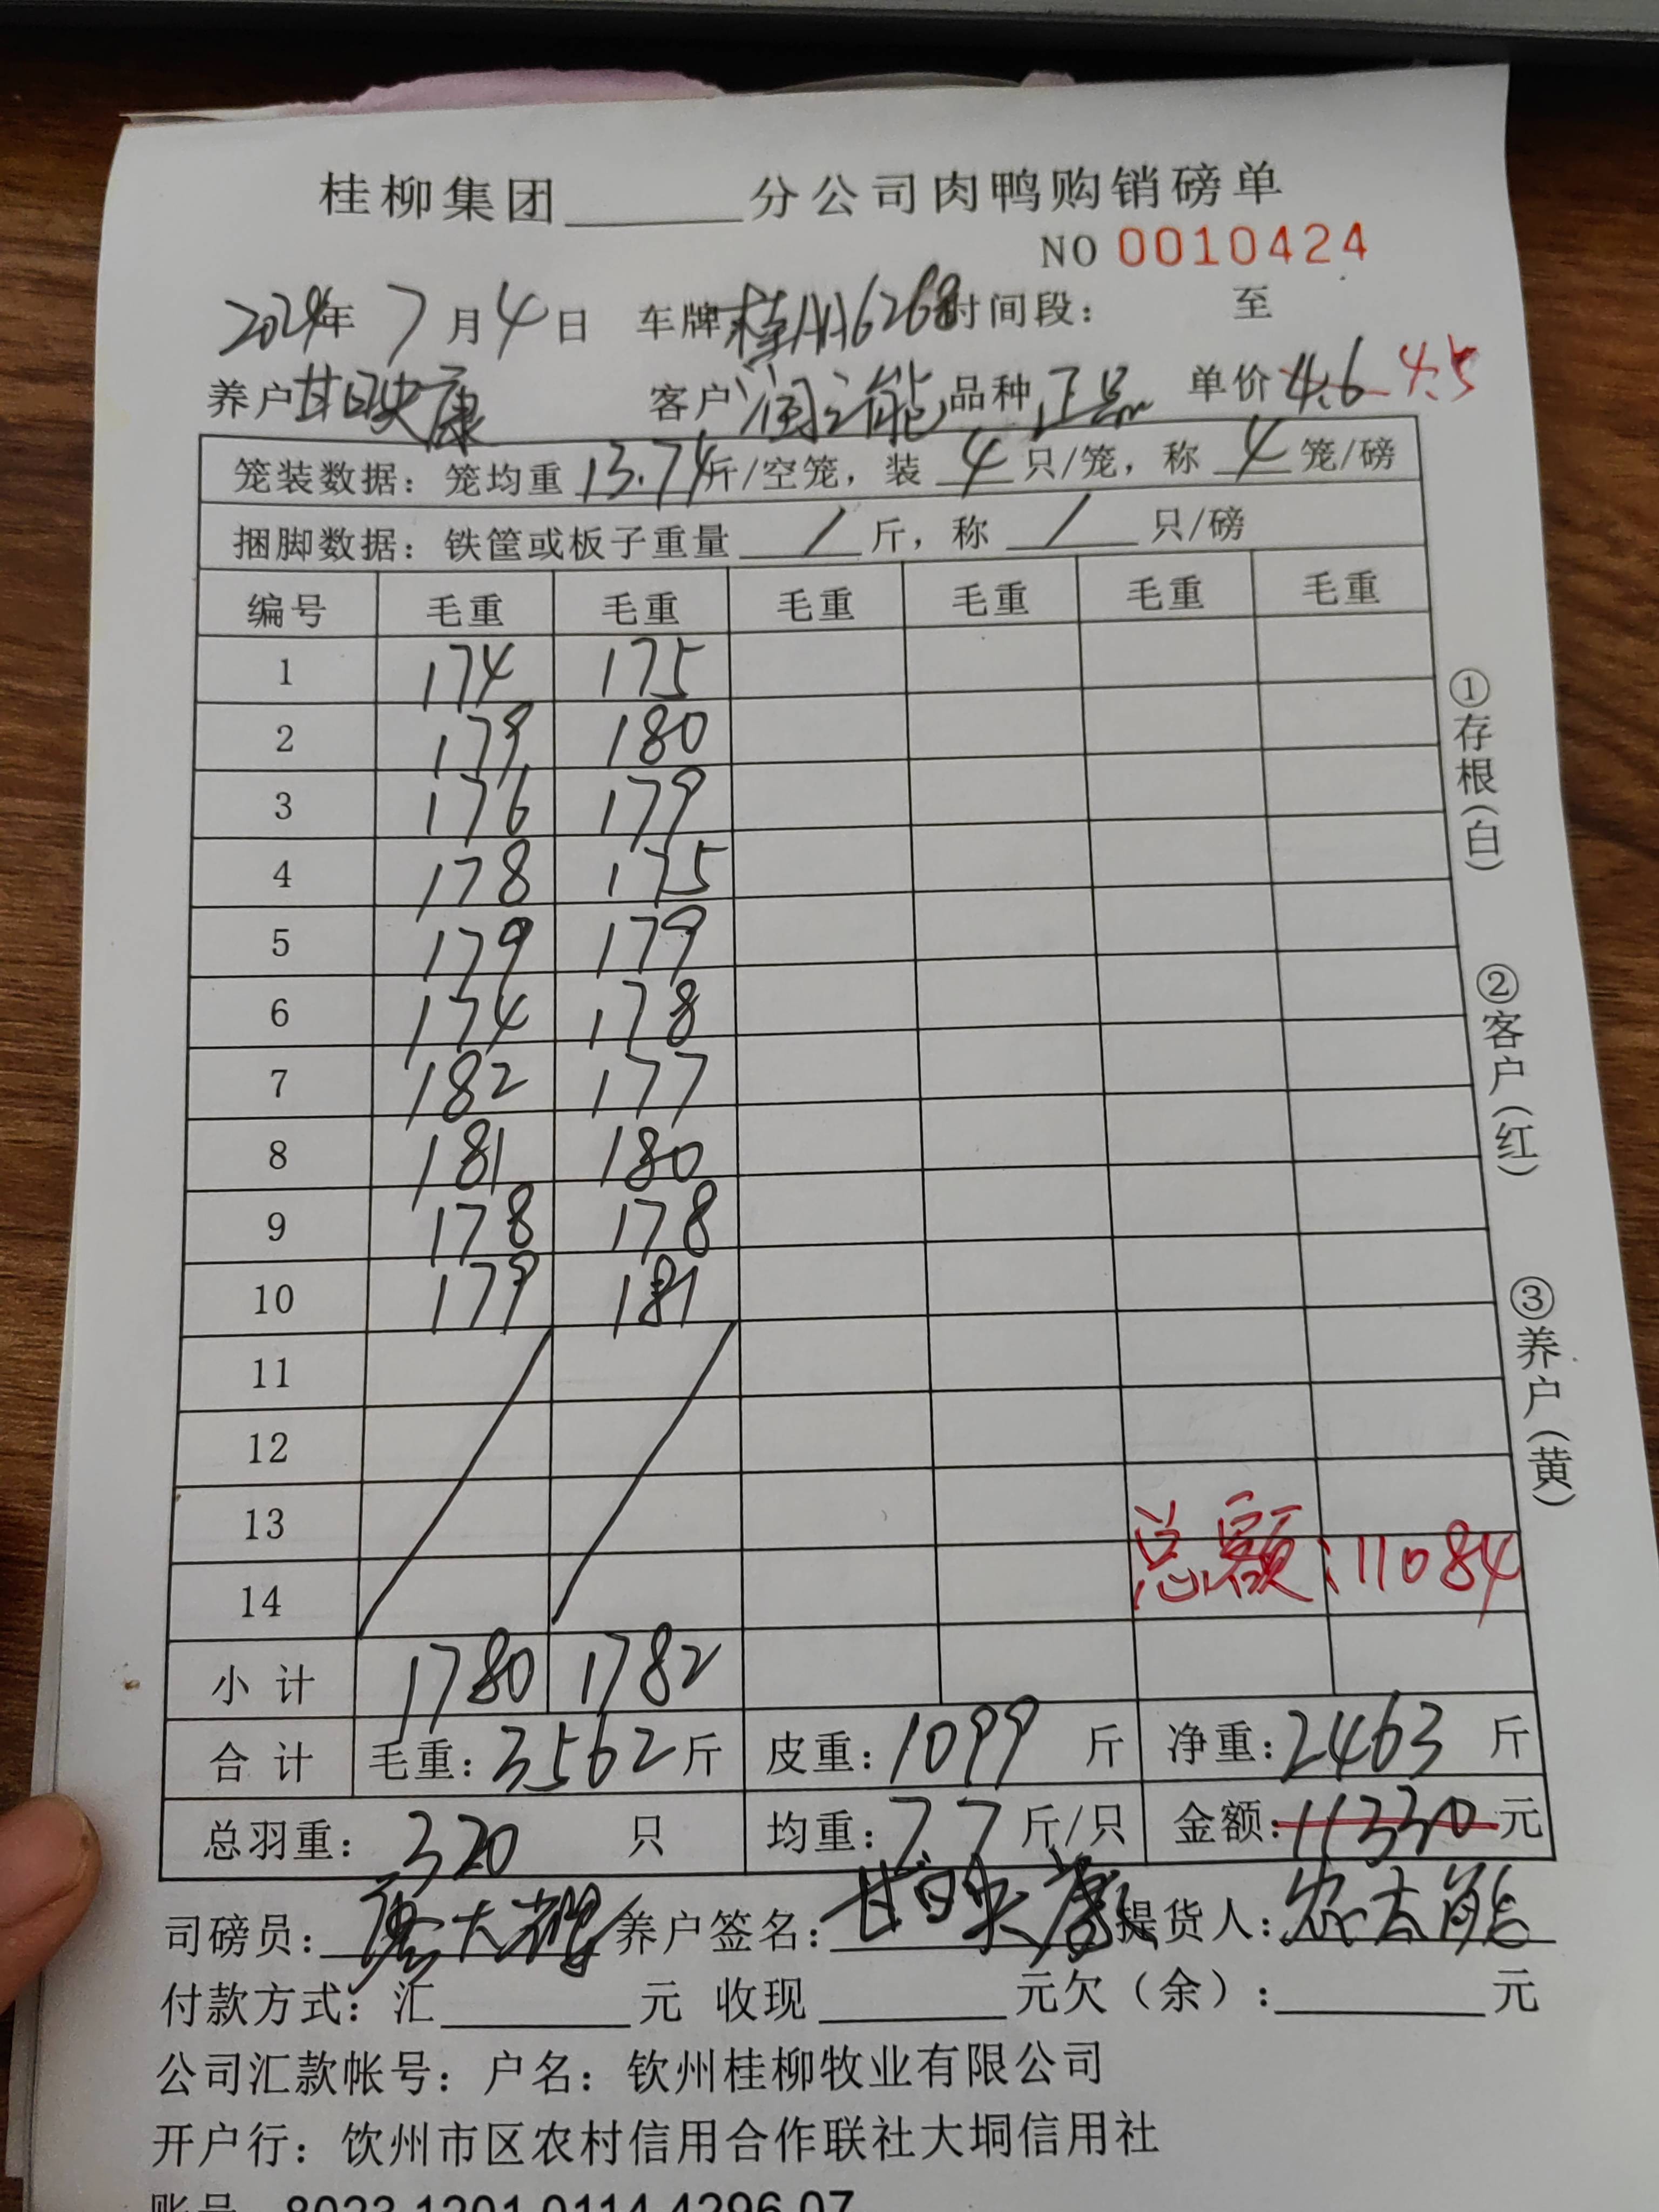 桂柳集团______分公司肉鸭购销磅单
NO 0010424
2024年 7月4日 车牌 6268 时间段： 至
养户 甘映康 客户 能 品种 正品 单价 4.6 4.5
笼装数据：笼均重 13.74 斤/空笼，装 4 只/笼，称 4 笼/磅
捆脚数据：铁筐或板子重量 / 斤，称 / 只/磅
编号 毛重 毛重 毛重 毛重 毛重 毛重
1 174 175
2 179 180
3 176 179
4 178 175
5 179 179
6 174 178
7 182 177
8 181 180
9 178 178
10 179 181
11
12
13
14
总额：11084
小计 1780 1782
合计 毛重：3562斤 皮重：1099 斤 净重：2463 斤
总羽重：320 只 均重：7.7 斤/只 金额：11330元
司磅员： 养户签名：甘映康 提货人：
付款方式：汇______元 收现______元欠（余）：______元
公司汇款帐号：户名：钦州桂柳牧业有限公司
开户行：饮州市区农村信用合作联社大垌信用社
账号 8023 1201 0114 4296 07
①存根（白）
②客户（红）
③养户（黄）